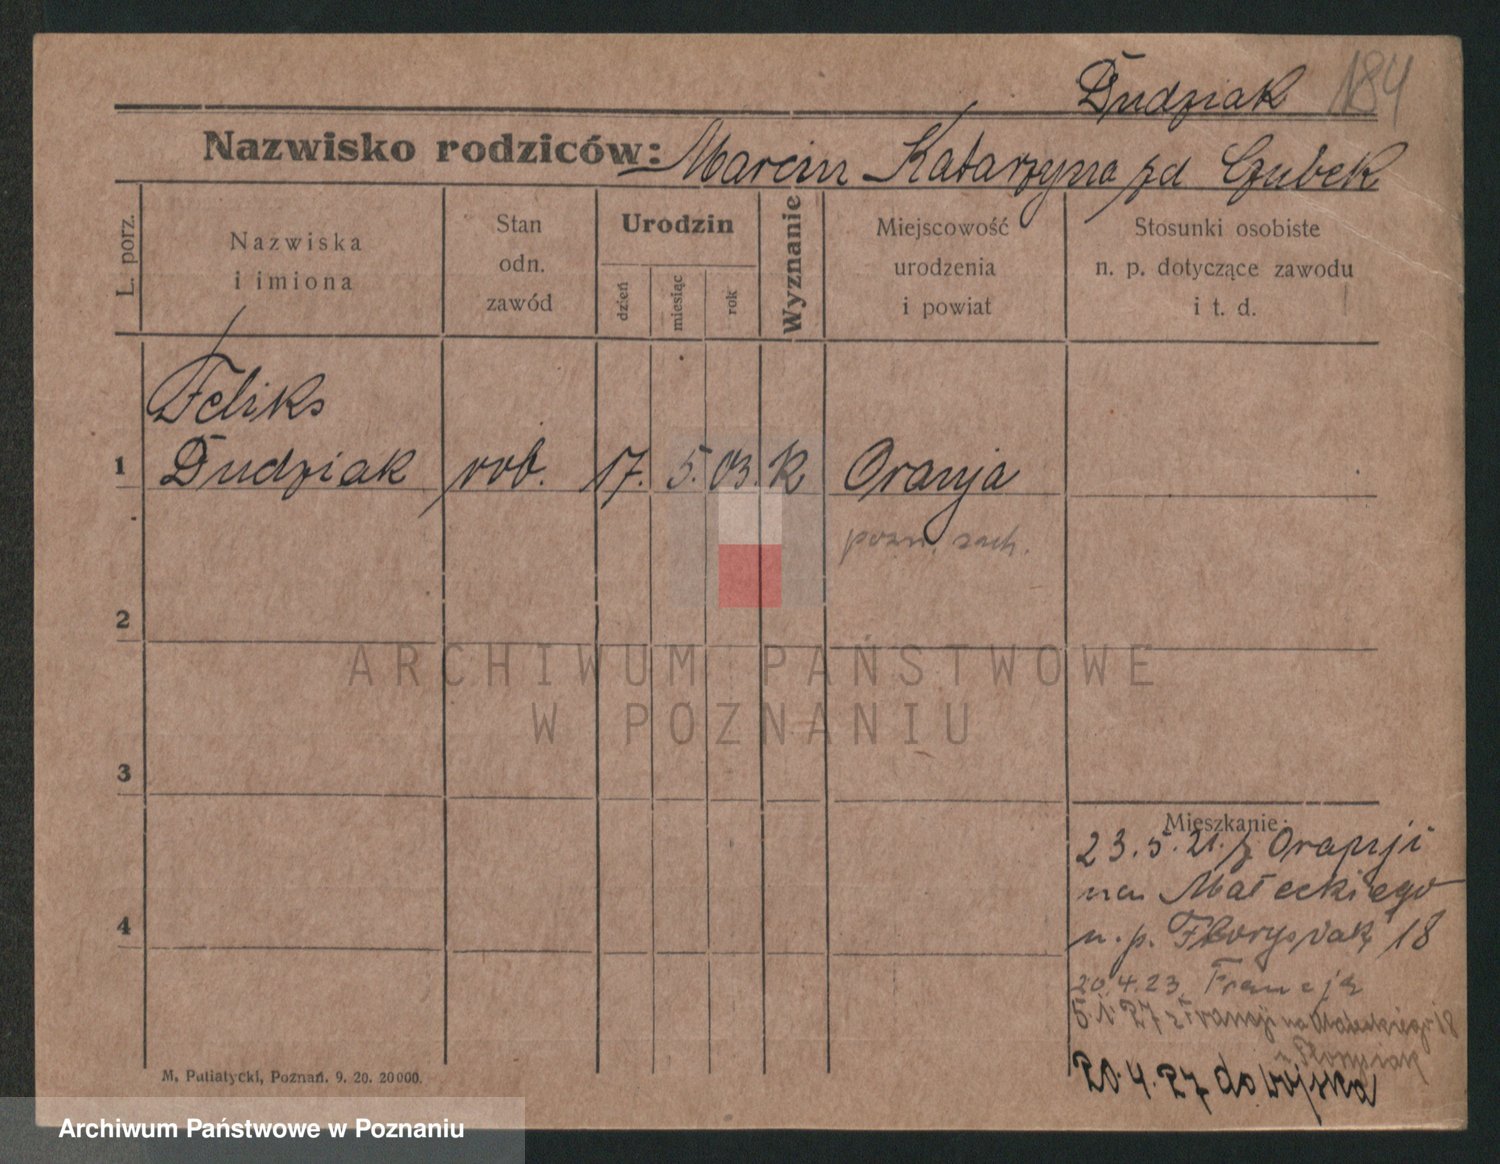 Dudziak 184
Nazwisko rodziców: Marcin Katarzyna zd Czubek
L. porz.
Nazwiska
i imiona
Stan
odn.
zawód
Urodzin
dzień
miesiąc
rok
Wyznanie
Miejscowość
urodzenia
i powiat
Stosunki osobiste
n. p. dotyczące zawodu
i t. d.
Feliks
1 Dudziak rob. 17. 5. 03. K Oranja
pozn. zach.
2
ARCHIWUM PAŃSTWOWE
W POZNANIU
3
Mieszkanie:
23.5.21. z Oranji
na Małeckiego
4
u. p. Florysiak 18
20.4.23 Francja
5.1.27 z Francji na Małeckiego 18
u Florysiak
20.4.27 do wojska
M. Putiatycki, Poznań. 9. 20. 20000.
Archiwum Państwowe w Poznaniu